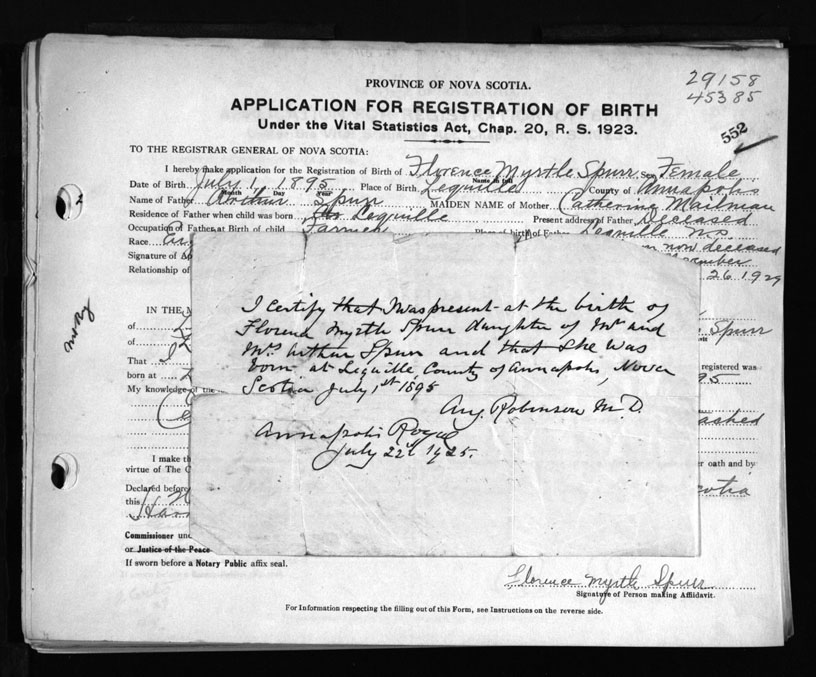 29158
45385
552
PROVINCE OF NOVA SCOTIA.
APPLICATION FOR REGISTRATION OF BIRTH
Under the Vital Statistics Act, Chap. 20, R. S. 1923.
TO THE REGISTRAR GENERAL OF NOVA SCOTIA:
I hereby make application for the Registration of Birth of Florence Myrtle Spurr Sex Female
Name in full
Date of Birth July 1, 1895 Place of Birth Lequille County of Annapolis
Month Day Year
Name of Father Arthur Spurr MAIDEN NAME of Mother Catherine Mailman
Residence of Father when child was born Lequille Present address of Father Deceased
Occupation of Father at Birth of child Farmer Place of birth of Father Lequille N.S
Race now deceased
Signature of
Relationship of 26 1929
IN THE
of
of Spurr
That I registered was
born at 95
My knowledge of the
ashed
I make th r oath and by
virtue of The C
Declared before cotia
this
Commissioner
or Justice of the Peace
If sworn before a Notary Public affix seal.
I certify that I was present at the birth of
Florence Myrtle Spurr daughter of Mr and
Mrs Arthur Spurr and that she was
born at Lequille County of Annapolis, Nova
Scotia July 1st 1895
Aug. Robinson M.D.
Annapolis Royal
July 22d 1925.
Florence Myrtle Spurr
Signature of Person making Affidavit.
For Information respecting the filling out of this Form, see Instructions on the reverse side.